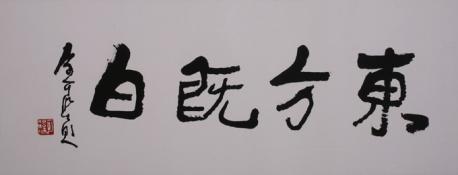 東方既白